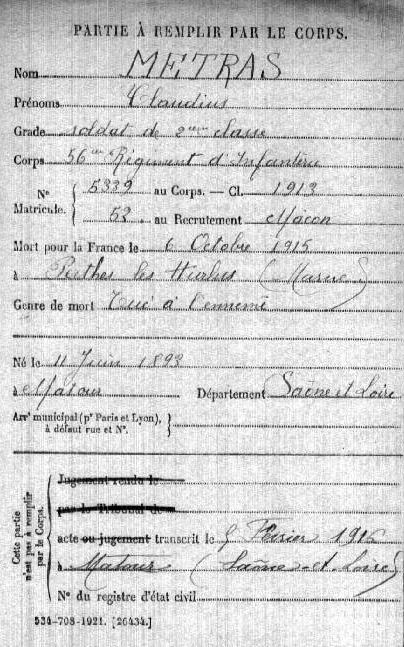 PARTIE À REMPLIR PAR LE CORPS.
Nom METRAS
Prénoms Claudius
Grade soldat de 2ème classe
Corps 56ème Régiment d'Infanterie
Nº 5339 au Corps. — Cl. 1913
Matricule. 52. au Recrutement Mâcon
Mort pour la France le 6 Octobre 1915
à Perthes les Hurlus (Marne)
Genre de mort Tué à l'ennemi
Né le 11 Juin 1893
à Matour Département Saône et Loire
Arr¹ municipal (pʳ Paris et Lyon),
à défaut rue et Nº.
Cette partie
n'est pas à remplir
par le Corps.
Jugement rendu le
par le Tribunal de
acte ou jugement transcrit le 5 Février 1916
à Matour (Saône-et-Loire)
Nº du registre d'état civil
534-708-1921. [26434.]